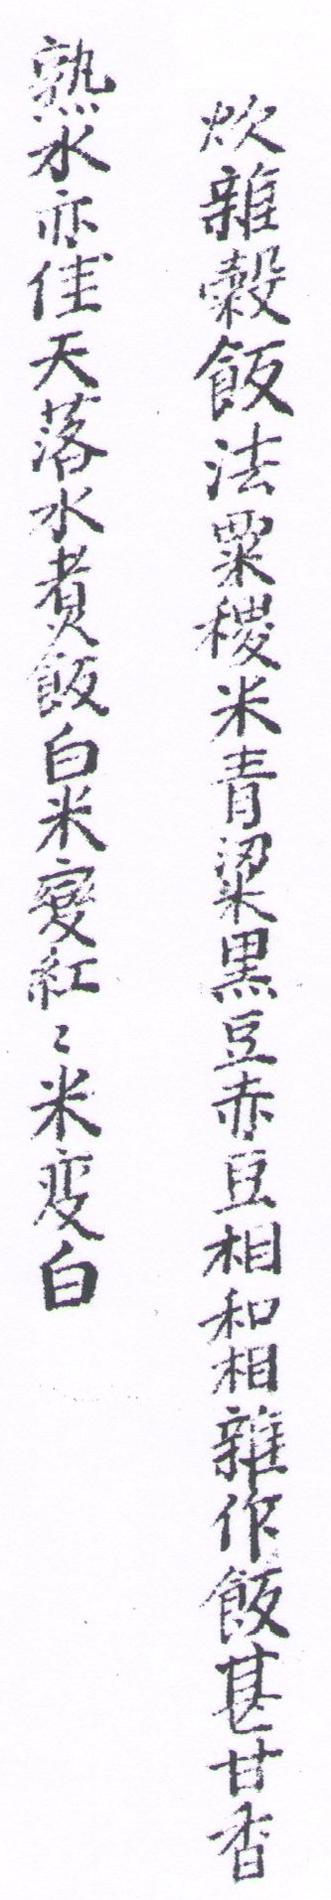 炊雜穀飯法粟稷米青粱黑豆赤豆相和相雜作飯甚甘香
熟水亦佳天落水煮飯白米變紅〻米变白